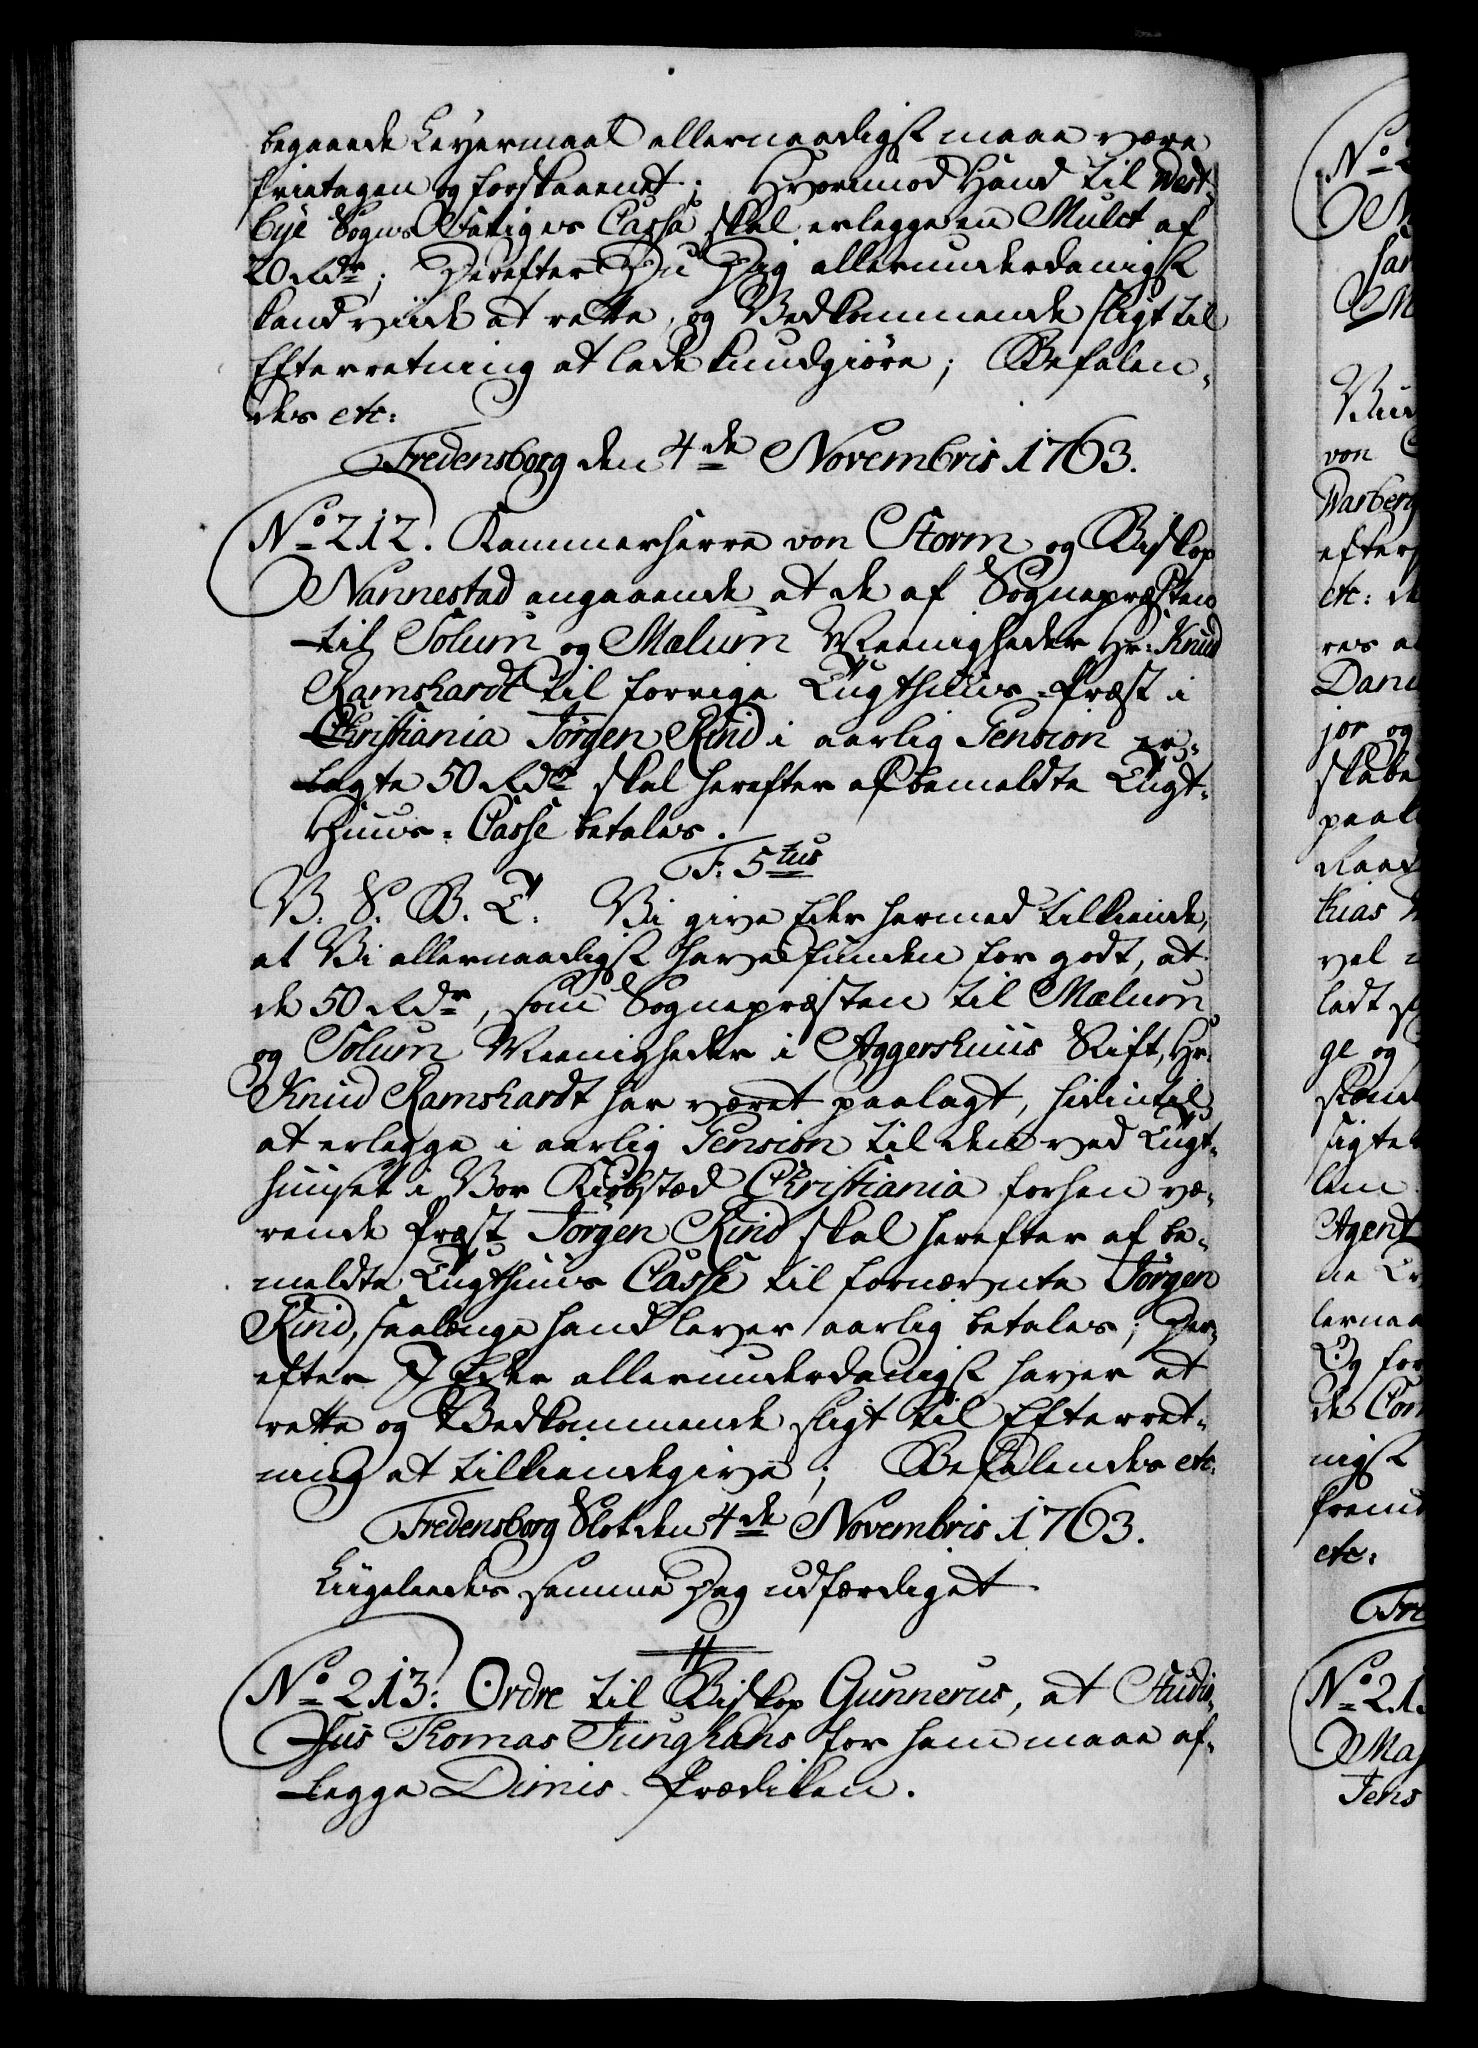 begaaede Leyermaal allernaadigst maae være
fritagen og forskaanet; Hvorimod Hand til West-
bye Sogns Fattiges Cassa skal erlegge en Mulct af
20 Rdr; Herefter Du Dig allerunderdanigst
kand viide at rette, og Vedkommende sligt til
Efterretning at lade kundgiøre; Befalen-
des etc:
Fredensborg den 4de Novembris 1763.
No 212. Kammerherre von Storm og Biskop
Nannestad angaaende at de af Sognepræsten
til Solum og Mælum Meenigheder Hr: Knud
Ramshardt til forrige Tugthuus-Præst i
Christiania Jørgen Rind i aarlig Pension er-
lagte 50 Rdr skal herefter af bemeldte Tugt-
Huus-Casse betales.
F: 5tus
V. S. B. T. Vi give Eder hermed tilkiende,
at Vi allernaadigst have funden for godt, at
de 50 Rdr, som Sognepræsten til Mælum
og Solum Meenigheder i Aggershuus Stift, Hr:
Knud Ramshardt har været paalagt, hidindtil
at erlegge i aarlig Pension til den ved Tugt-
huuset i Vor Kiøbstæd Christiania forhen væ-
rende Præst Jørgen Rind skal herefter af be-
meldte Tugthuus Casse til fornævnte Jørgen
Rind, saalænge hand lever aarlig betales; Her-
efter I Eder allerunderdanigst haver at
rette og Vedkommende sligt til Efterret-
ning at tilkiendegive; Befalendes etc:
Fredensborg Slot den 4de Novembris 1763.
Liigeleedes samme Dag udfærdiget
No 213: Ordre til Biskop Gunnerus, at Studio-
sus Thomas Junghans for ham maae af-
legge Dimis-Prædiken.